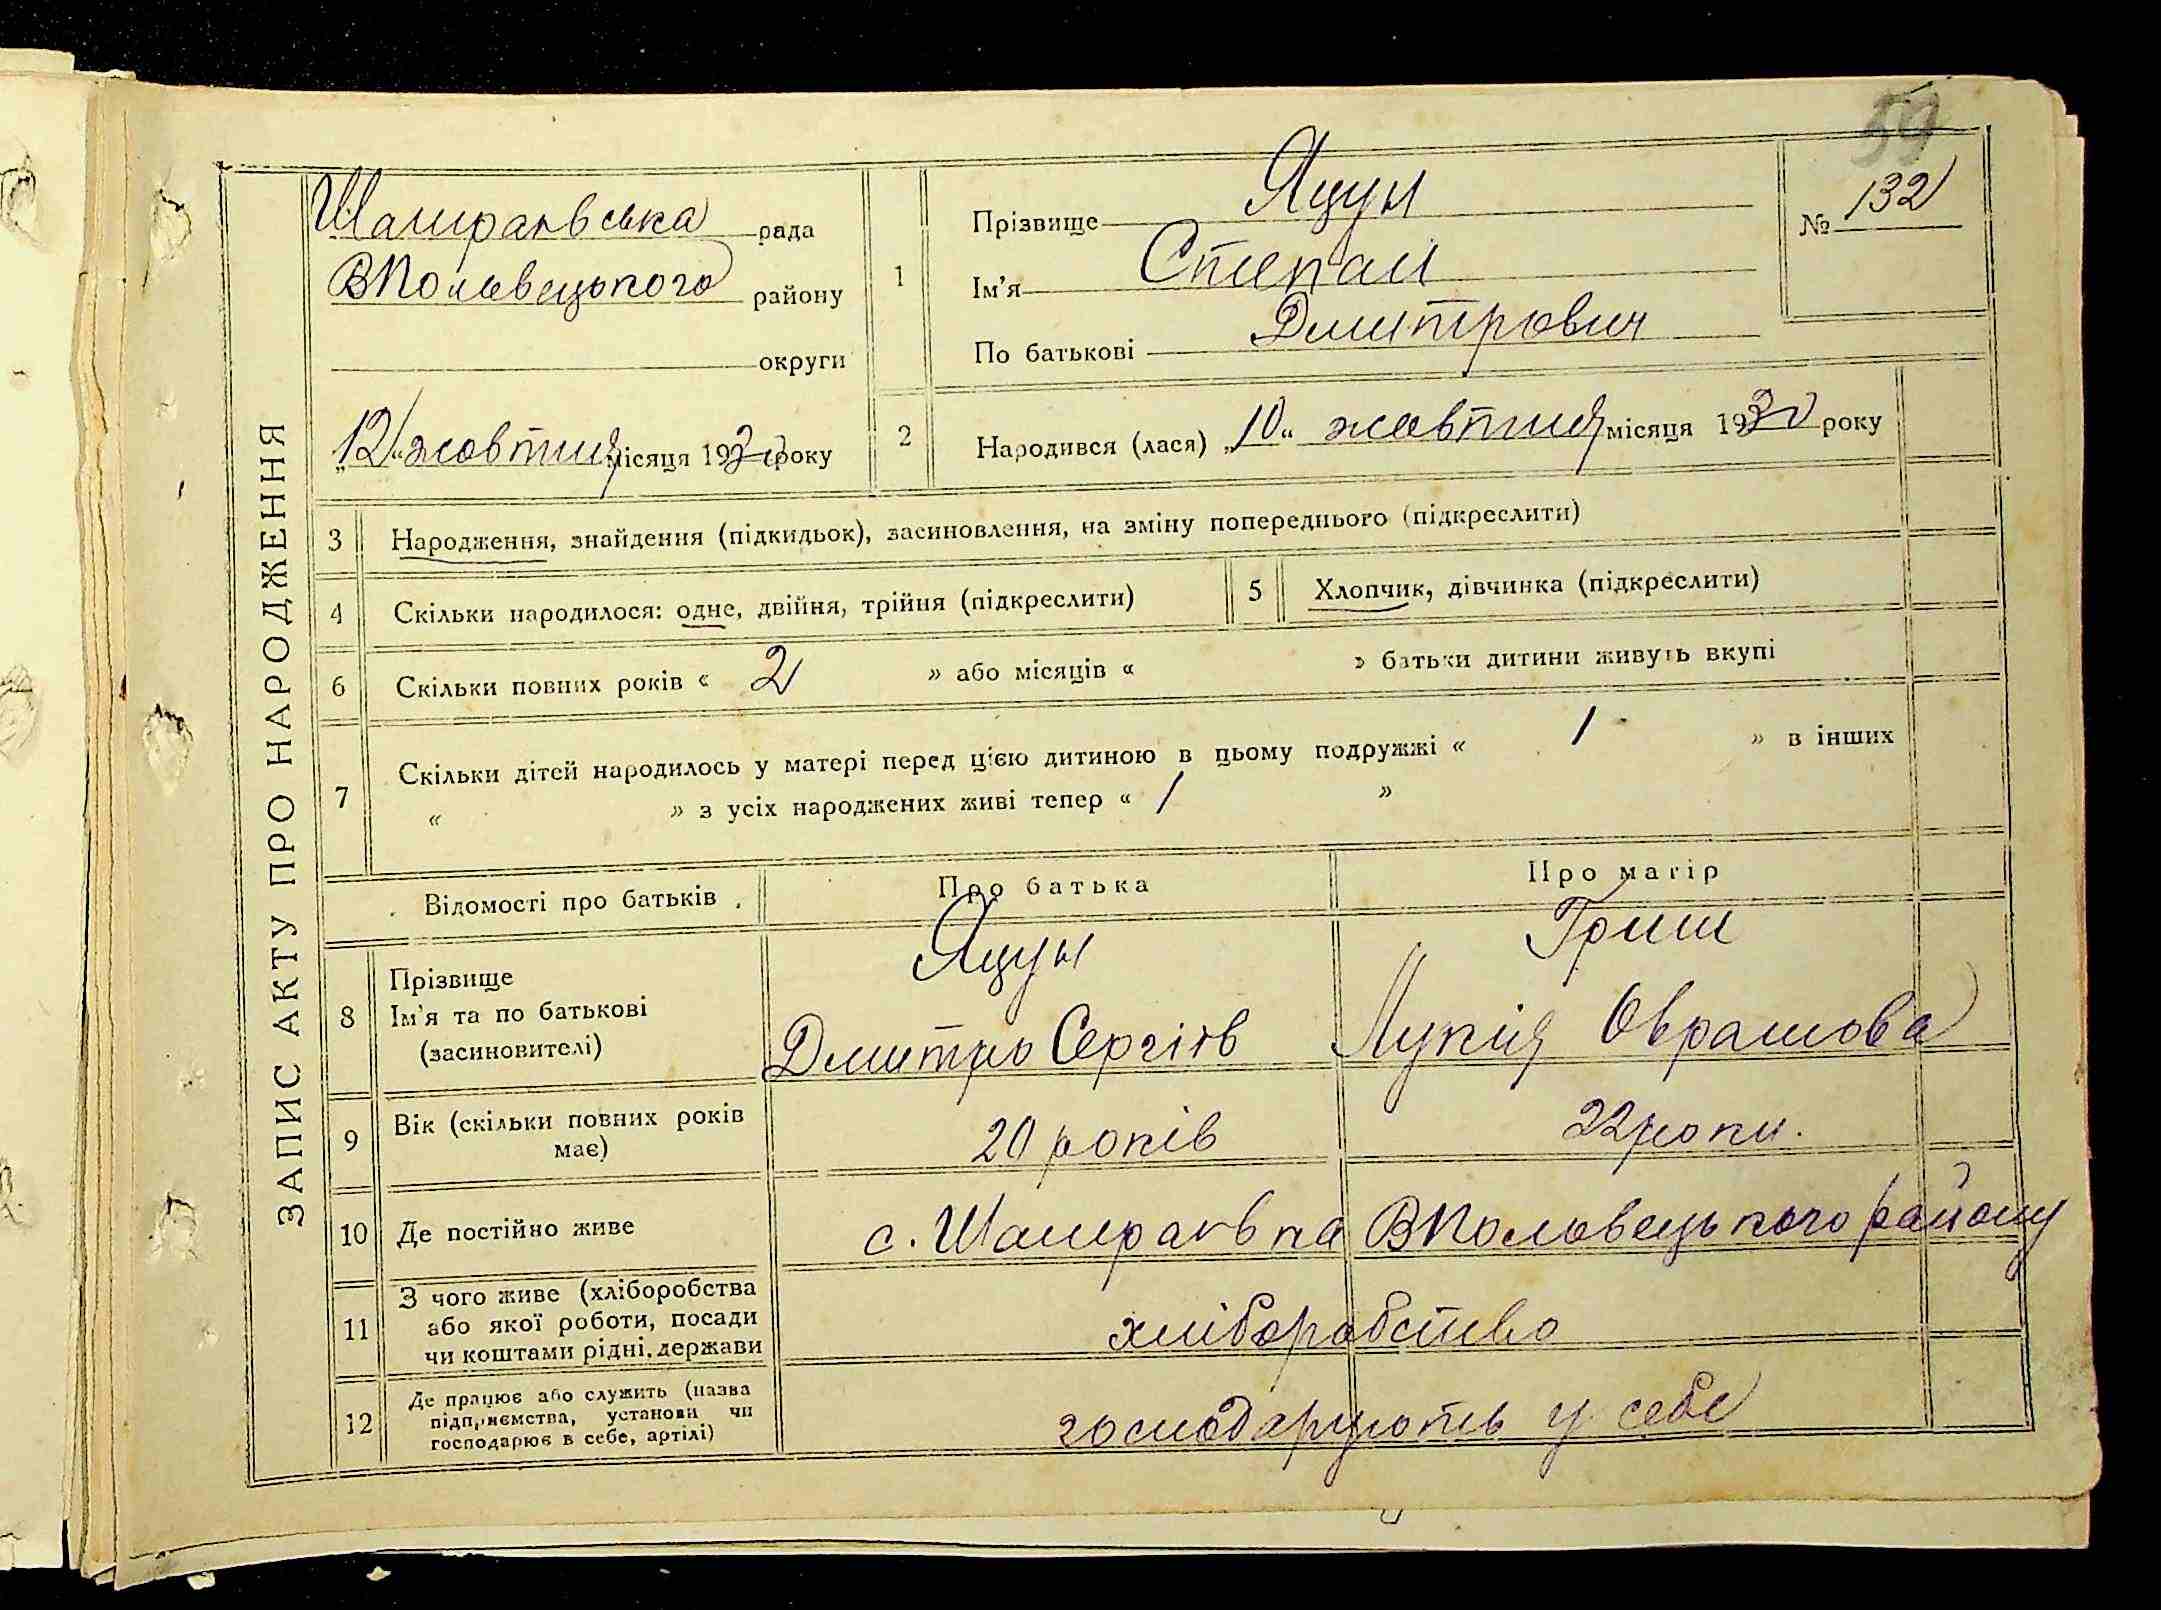 59
ЗАПИС АКТУ ПРО НАРОДЖЕННЯ
Шамраївська рада
ВПоловецького району
округи
„12“ жовтня місяця 1930 року
1
Прізвище Яцун
Ім'я Степан
По батькові Дмитрович
№ 132
2 Народився (лася) „10“ жовтня місяця 1930 року
3 Народження, знайдення (підкидьок), засиновлення, на зміну попереднього (підкреслити)
4 Скільки народилося: одне, двійня, трійня (підкреслити)
5 Хлопчик, дівчинка (підкреслити)
6 Скільки повних років « 2 » або місяців « » батьки дитини живуть вкупі
7 Скільки дітей народилось у матері перед цією дитиною в цьому подружжі « 1 » в інших
« » з усіх народжених живі тепер « 1 »
Відомості про батьків Про батька Про матір
8 Прізвище
Ім'я та по батькові
(засиновителі)
Яцун
Дмитро Сергіїв
Гриш
Лукія Оврамова
9 Вік (скільки повних років
має)
20 років 22 роки.
10 Де постійно живе с. Шамраївка ВПоловецького району
11 З чого живе (хліборобства
або якої роботи, посади
чи коштами рідні, держави
хліборобство
12 Де працює або служить (назва
підприємства, установи чи
господарює в себе, артілі)
господарують у себе